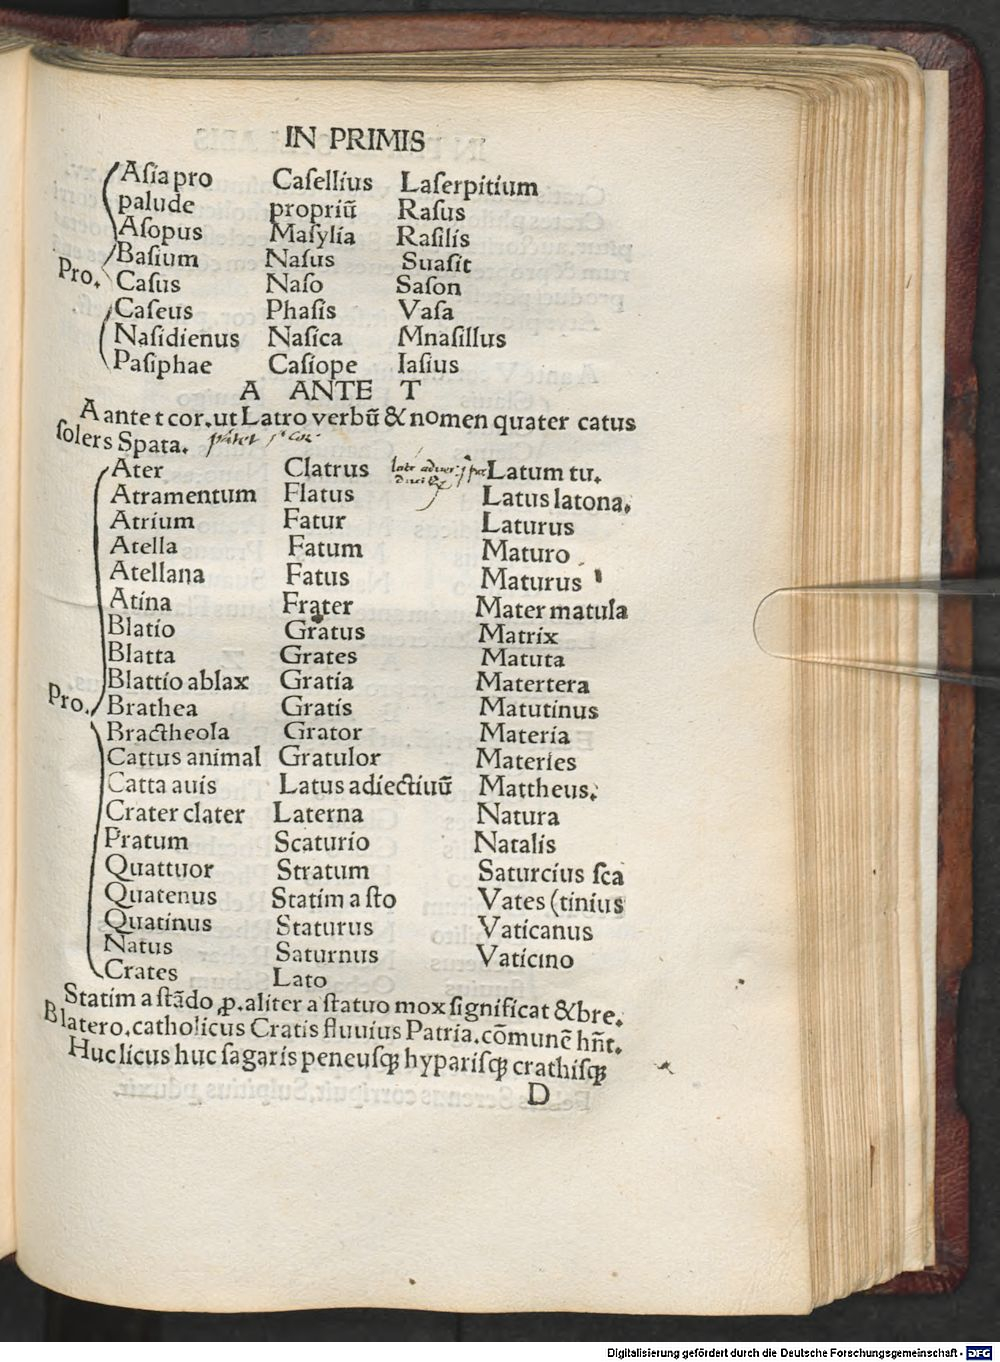 IN PRIMIS
Aſia pro Caſellius Laſerpitium
palude propriū Raſus
Aſopus Maſylia Raſilis
Baſium Naſus Suaſit
Pro. Caſus Naſo Saſon
Caſeus Phaſis Vaſa
Naſidienus Naſica Mnaſillus
Paſiphae Caſiope Iaſius
A ANTE T
A ante t cor. ut Latro verbū & nomen quater catus
ſolers Spata.
Ater Clatrus Latum tu.
Atramentum Flatus Latus latona.
Atrium Fatur Laturus
Atella Fatum Maturo
Atellana Fatus Maturus
Atina Frater Mater matula
Blatio Gratus Matrix
Blatta Grates Matuta
Blattio ablax Gratia Matertera
Pro. Brathea Gratis Matutinus
Bractheola Grator Materia
Cattus animal Gratulor Materies
Catta avis Latus adiectiuū Mattheus.
Crater clater Laterna Natura
Pratum Scaturio Natalis
Quattuor Stratum Saturcius ſca
Quatenus Statim a ſto Vates (tinius
Quatinus Staturus Vaticanus
Natus Saturnus Vaticino
Crates Lato
Statim a ſtādo ꝓ. aliter a ſtatuo mox ſignificat & bre.
Blatero. catholicus Cratis fluuius Patria. cōmunē hn̄t.
Huc licus huc ſagaris peneuſqꝫ hypariſqꝫ crathiſqꝫ
D
Digitalisierung gefördert durch die Deutsche Forschungsgemeinschaft - DFG